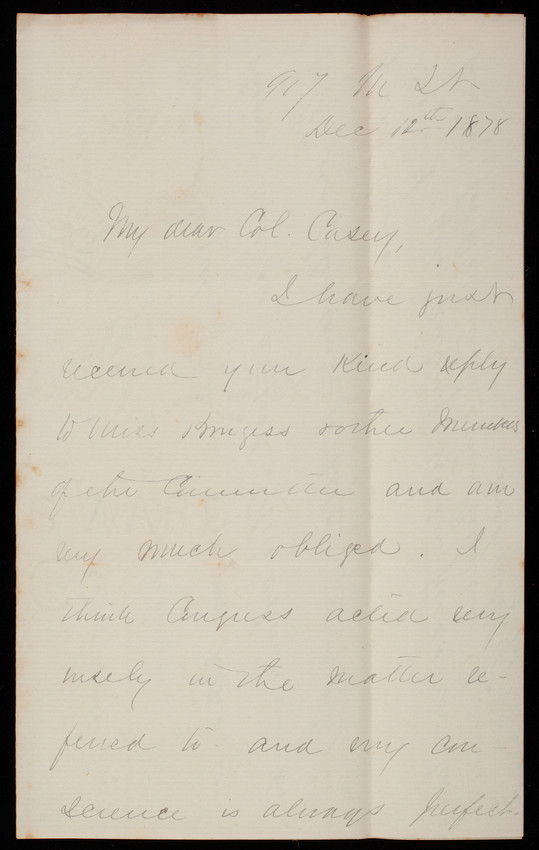 917 M St
Dec 12th 1878
My dear Col. Casey,
I have just
received your kind reply
to Miss Burgess & other Members
of the Committee and am
very much obliged. I
think Congress acted very
wisely in the matter re-
ferred to and my con-
science is always perfect-